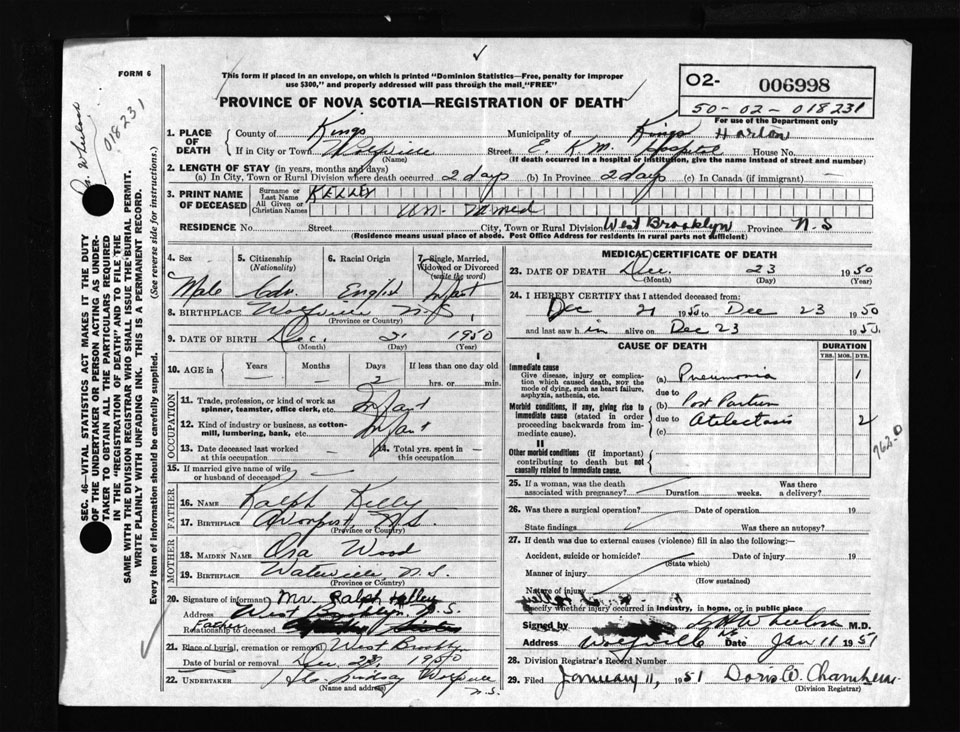 ✓
FORM 6
This form if placed in an envelope, on which is printed "Dominion Statistics—Free, penalty for improper
use $300," and properly addressed will pass through the mail "FREE"
PROVINCE OF NOVA SCOTIA—REGISTRATION OF DEATH
02- 006998
50-02-018231
For use of the Department only
018231
SEC. 46—VITAL STATISTICS ACT MAKES IT THE DUTY
OF THE UNDERTAKER OR PERSON ACTING AS UNDER-
TAKER TO OBTAIN ALL THE PARTICULARS REQUIRED
IN THE "REGISTRATION OF DEATH" AND TO FILE THE
SAME WITH THE DIVISION REGISTRAR WHO SHALL ISSUE THE BURIAL PERMIT.
WRITE PLAINLY WITH UNFADING INK. THIS IS A PERMANENT RECORD.
Every item of information should be carefully supplied. (See reverse side for instructions.)
1. PLACE OF DEATH County of Kings Municipality of Kings
If in City or Town Wolfville (Name) Street E. K. M. Hospital House No.
(If death occurred in a hospital or institution, give the name instead of street and number)
2. LENGTH OF STAY (in years, months and days)
(a) In City, Town or Rural Division where death occurred 2 days (b) In Province 2 days (c) In Canada (if immigrant) —
3. PRINT NAME OF DECEASED Surname or Last Name KELLEY
All Given or Christian Names Un-named
RESIDENCE No. Street City, Town or Rural Division West Brooklyn Province N.S
(Residence means usual place of abode. Post Office Address for residents in rural parts not sufficient)
4. Sex Male
5. Citizenship (Nationality) Cdn.
6. Racial Origin English
7. Single, Married, Widowed or Divorced (write the word) Infant
8. BIRTHPLACE Wolfville N.S (Province or Country)
9. DATE OF BIRTH Dec. (Month) 21 (Day) 1950 (Year)
10. AGE in Years — Months — Days 2 If less than one day old hrs. or min.
OCCUPATION
11. Trade, profession, or kind of work as spinner, teamster, office clerk, etc. Infant
12. Kind of industry or business, as cotton-mill, lumbering, bank, etc. Infant
13. Date deceased last worked at this occupation — 14. Total yrs. spent in this occupation —
15. If married give name of wife or husband of deceased —
FATHER
16. NAME Ralph Kelly
17. BIRTHPLACE Avonport, N.S. (Province or Country)
MOTHER
18. MAIDEN NAME Ora Wood
19. BIRTHPLACE Waterville N.S. (Province or Country)
20. Signature of informant Mr. Ralph Kelley
Address West Brooklyn N.S.
Relationship to deceased Father
21. Place of burial, cremation or removal West Brooklyn
Date of burial or removal Dec. 23, 1950
22. UNDERTAKER Lindsay Wolfville N.S. (Name and address)
MEDICAL CERTIFICATE OF DEATH
23. DATE OF DEATH Dec. (Month) 23 (Day) 1950 (Year)
24. I HEREBY CERTIFY that I attended deceased from:
Dec 21 1950 to Dec 23 1950
and last saw him alive on Dec 23 1950
CAUSE OF DEATH DURATION
YRS. MOS. DYS.
I
Immediate cause
Give disease, injury or complica-
tion which caused death, NOT the
mode of dying, such as heart failure,
asphyxia, asthenia, etc.
(a) Pneumonia 1
due to
Morbid conditions, if any, giving rise to
immediate cause (stated in order
proceeding backwards from im-
mediate cause).
(b) Post Partum
due to Atelectasis 2
(c)
762-0
II
Other morbid conditions (if important)
contributing to death but not
causally related to immediate cause.
25. If a woman, was the death associated with pregnancy? Duration weeks. Was there a delivery?
26. Was there a surgical operation? Date of operation 19
State findings Was there an autopsy?
27. If death was due to external causes (violence) fill in also the following:—
Accident, suicide or homicide? (State which) Date of injury 19
Manner of injury (How sustained)
Nature of injury
Specify whether injury occurred in industry, in home, or in public place
Signed by M.D.
Address Wolfville NS Date Jan 11 1951
28. Division Registrar's Record Number
29. Filed January 11, 1951 Doris W. Chambers (Division Registrar)